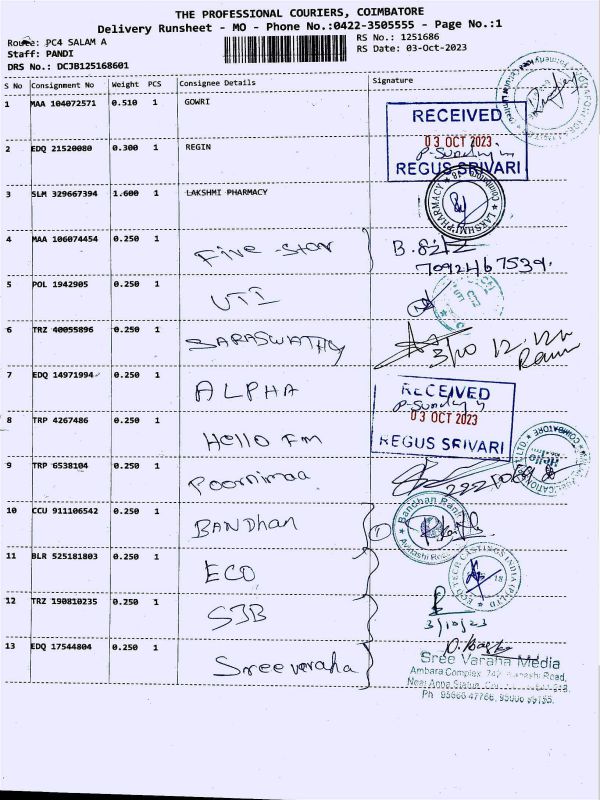 THE PROFESSIONAL COURIERS, COIMBATORE
Delivery Runsheet - MO - Phone No.:0422-3505555 - Page No.:1
Route: PC4 SALAM A
RS No.: 1251686
Staff: PANDI
RS Date: 03-Oct-2023
DRS No.: DCJB125168601
S No Consignment No Weight PCS Consignee Details Signature
1 MAA 104072571 0.510 1 GOWRI
RECEIVED
03 OCT 2023
REGUS SRIVARI
2 EDQ 21520080 0.300 1 REGIN
3 SLM 329667394 1.600 1 LAKSHMI PHARMACY
LAKSHMI PHARMACY
4 MAA 106074454 0.250 1 Five-Star
7092467539.
5 POL 1942905 0.250 1 UTI
6 TRZ 40055896 0.250 1 SARASWATHY
3/10
7 EDQ 14971994 0.250 1 ALPHA
RECEIVED
03 OCT 2023
REGUS SRIVARI
8 TRP 4267486 0.250 1 Hello FM
Hello
COIMBATORE
9 TRP 6538104 0.250 1 Poornimaa
10 CCU 911106542 0.250 1 BANDhan
Bandhan Bank
11 BLR 525181803 0.250 1 ECO
ECO TECH CASTINGS INDIA (P) LTD
12 TRZ 190810235 0.250 1 SJB
3/10/23
13 EDQ 17544804 0.250 1 Sreevaraha
Sree Varaha Media
Ambara Complex,